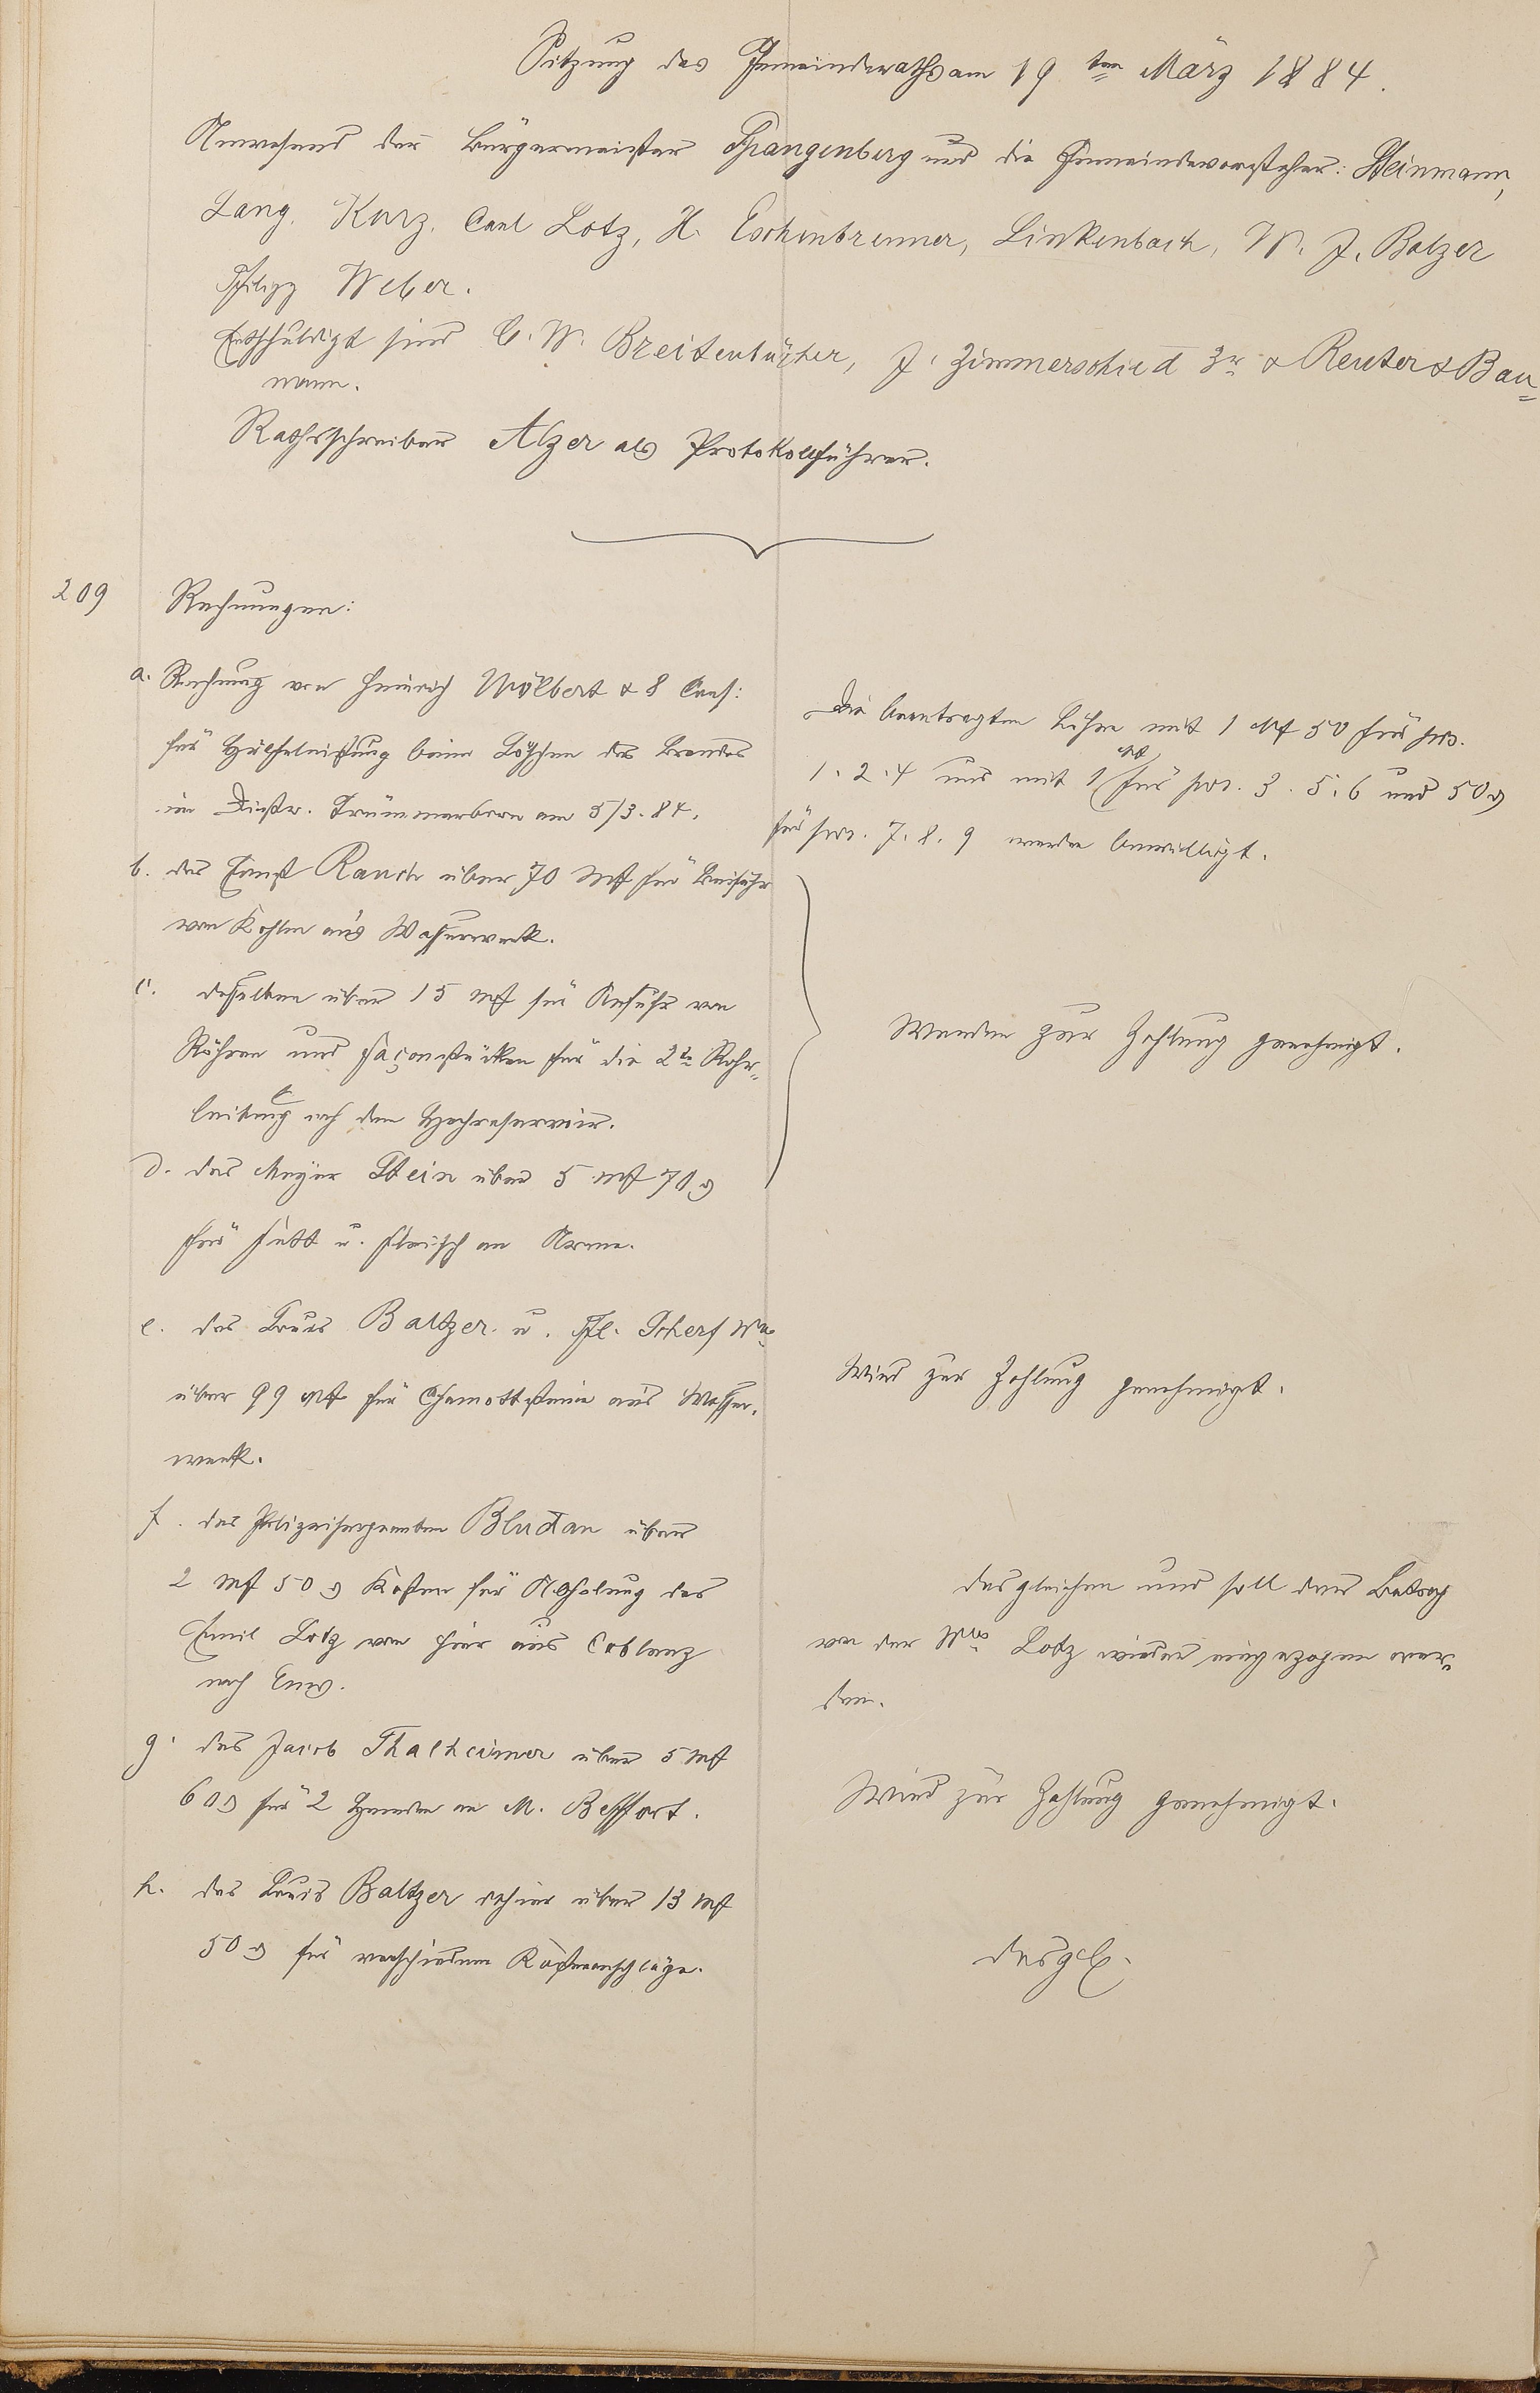 Sitzung des Gemeinderaths am 19ten März 1884.
Anwesend der Bürgermeister Spangenberg und die Gemeindevorsteher: Steinmann,
Lang, Kurz, Carl Lotz, H. Eschenbrenner, Linkenbach, W. J. Balzer
Philipp Weber.
Entschuldigt sind C. W. Breitenbücher, J. Zimmerschied 3r & Reuter & Bau=
mann.
Rathsschreiber Alzer als Protokollführer.
209 Rechnungen:
a. Rechnung von Heinrich Wölbert & 8 Cons:
für Hülfeleistung beim Löschen des Brandes
im Distr. Trümmerborn am 5/3. 84.
Die beantragten Löhne mit 1 M 50 für pos.
1. 2. 4 und mit 1 M für pos. 3. 5. 6 und 50 ₰
für pos. 7. 8. 9 werden bewilligt.
b. des Ernst Rauch über 70 M für Beifuhr
von Kohlen an's Wasserwerk.
c. desselben über 15 M für Anfuhr von
Röhren und Façonstücken für die 2te Rohr=
leitung nach dem Hochreservoir.
d. des Meyer Stein über 5 M 70 ₰
für Fett u. Fleisch an Arme.
Werden zur Zahlung genehmigt.
e. des Louis Baltzer u. Ph. Scherf Wwe
über 99 M für Chamottsteine an's Wasser=
werk.
Wird zur Zahlung genehmigt.
f. des Polizeisergeanten Bludau über
2 M 50 ₰ Kosten für Abholung des
Emil Lotz von hier aus Coblenz
nach Ems.
desgleichen und soll der Betrag
von der Wwe Lotz wieder eingezogen wer=
den.
g. des Jacob Thalheimer über 5 M
60 ₰ für 2 Hemden an M. Beffort.
Wird zur Zahlung genehmigt.
h. des Louis Baltzer dahier über 13 M
50 ₰ für verschiedene Kostenanschläge.
desgl.